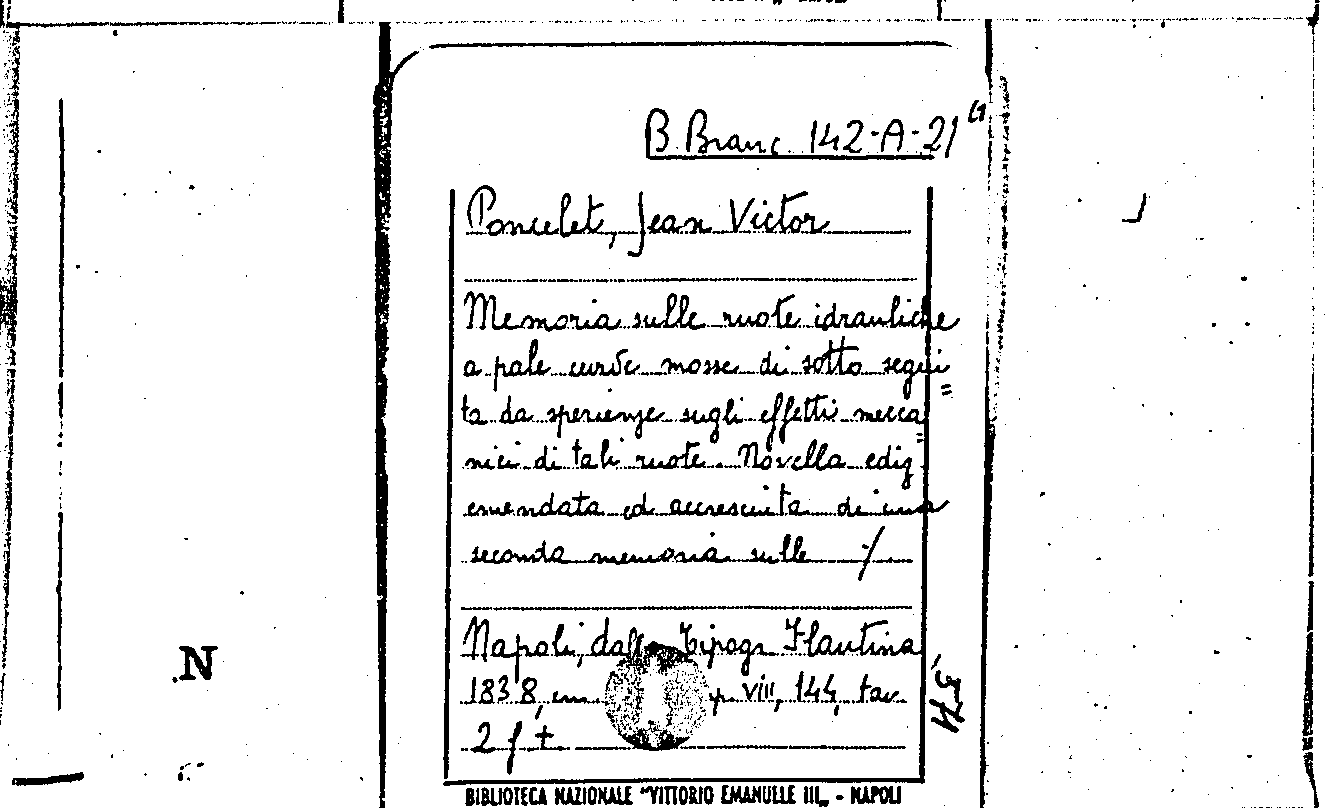 B. Branc. 142-A-21 G
Poncelet, Jean Victor
Memoria sulle ruote idrauliche
a pale curve mosse di sotto segui=
ta da sperienze sugli effetti mecca=
nici di tali ruote. Novella ediz.
emendata ed accresciuta di una
seconda memoria sulle ./.
Napoli, dalla Tipogr. Flautina
1838, cm. p. VIII, 144, tav.
2 f +
N
BIBLIOTECA NAZIONALE "VITTORIO EMANUELE III„ - NAPOLI